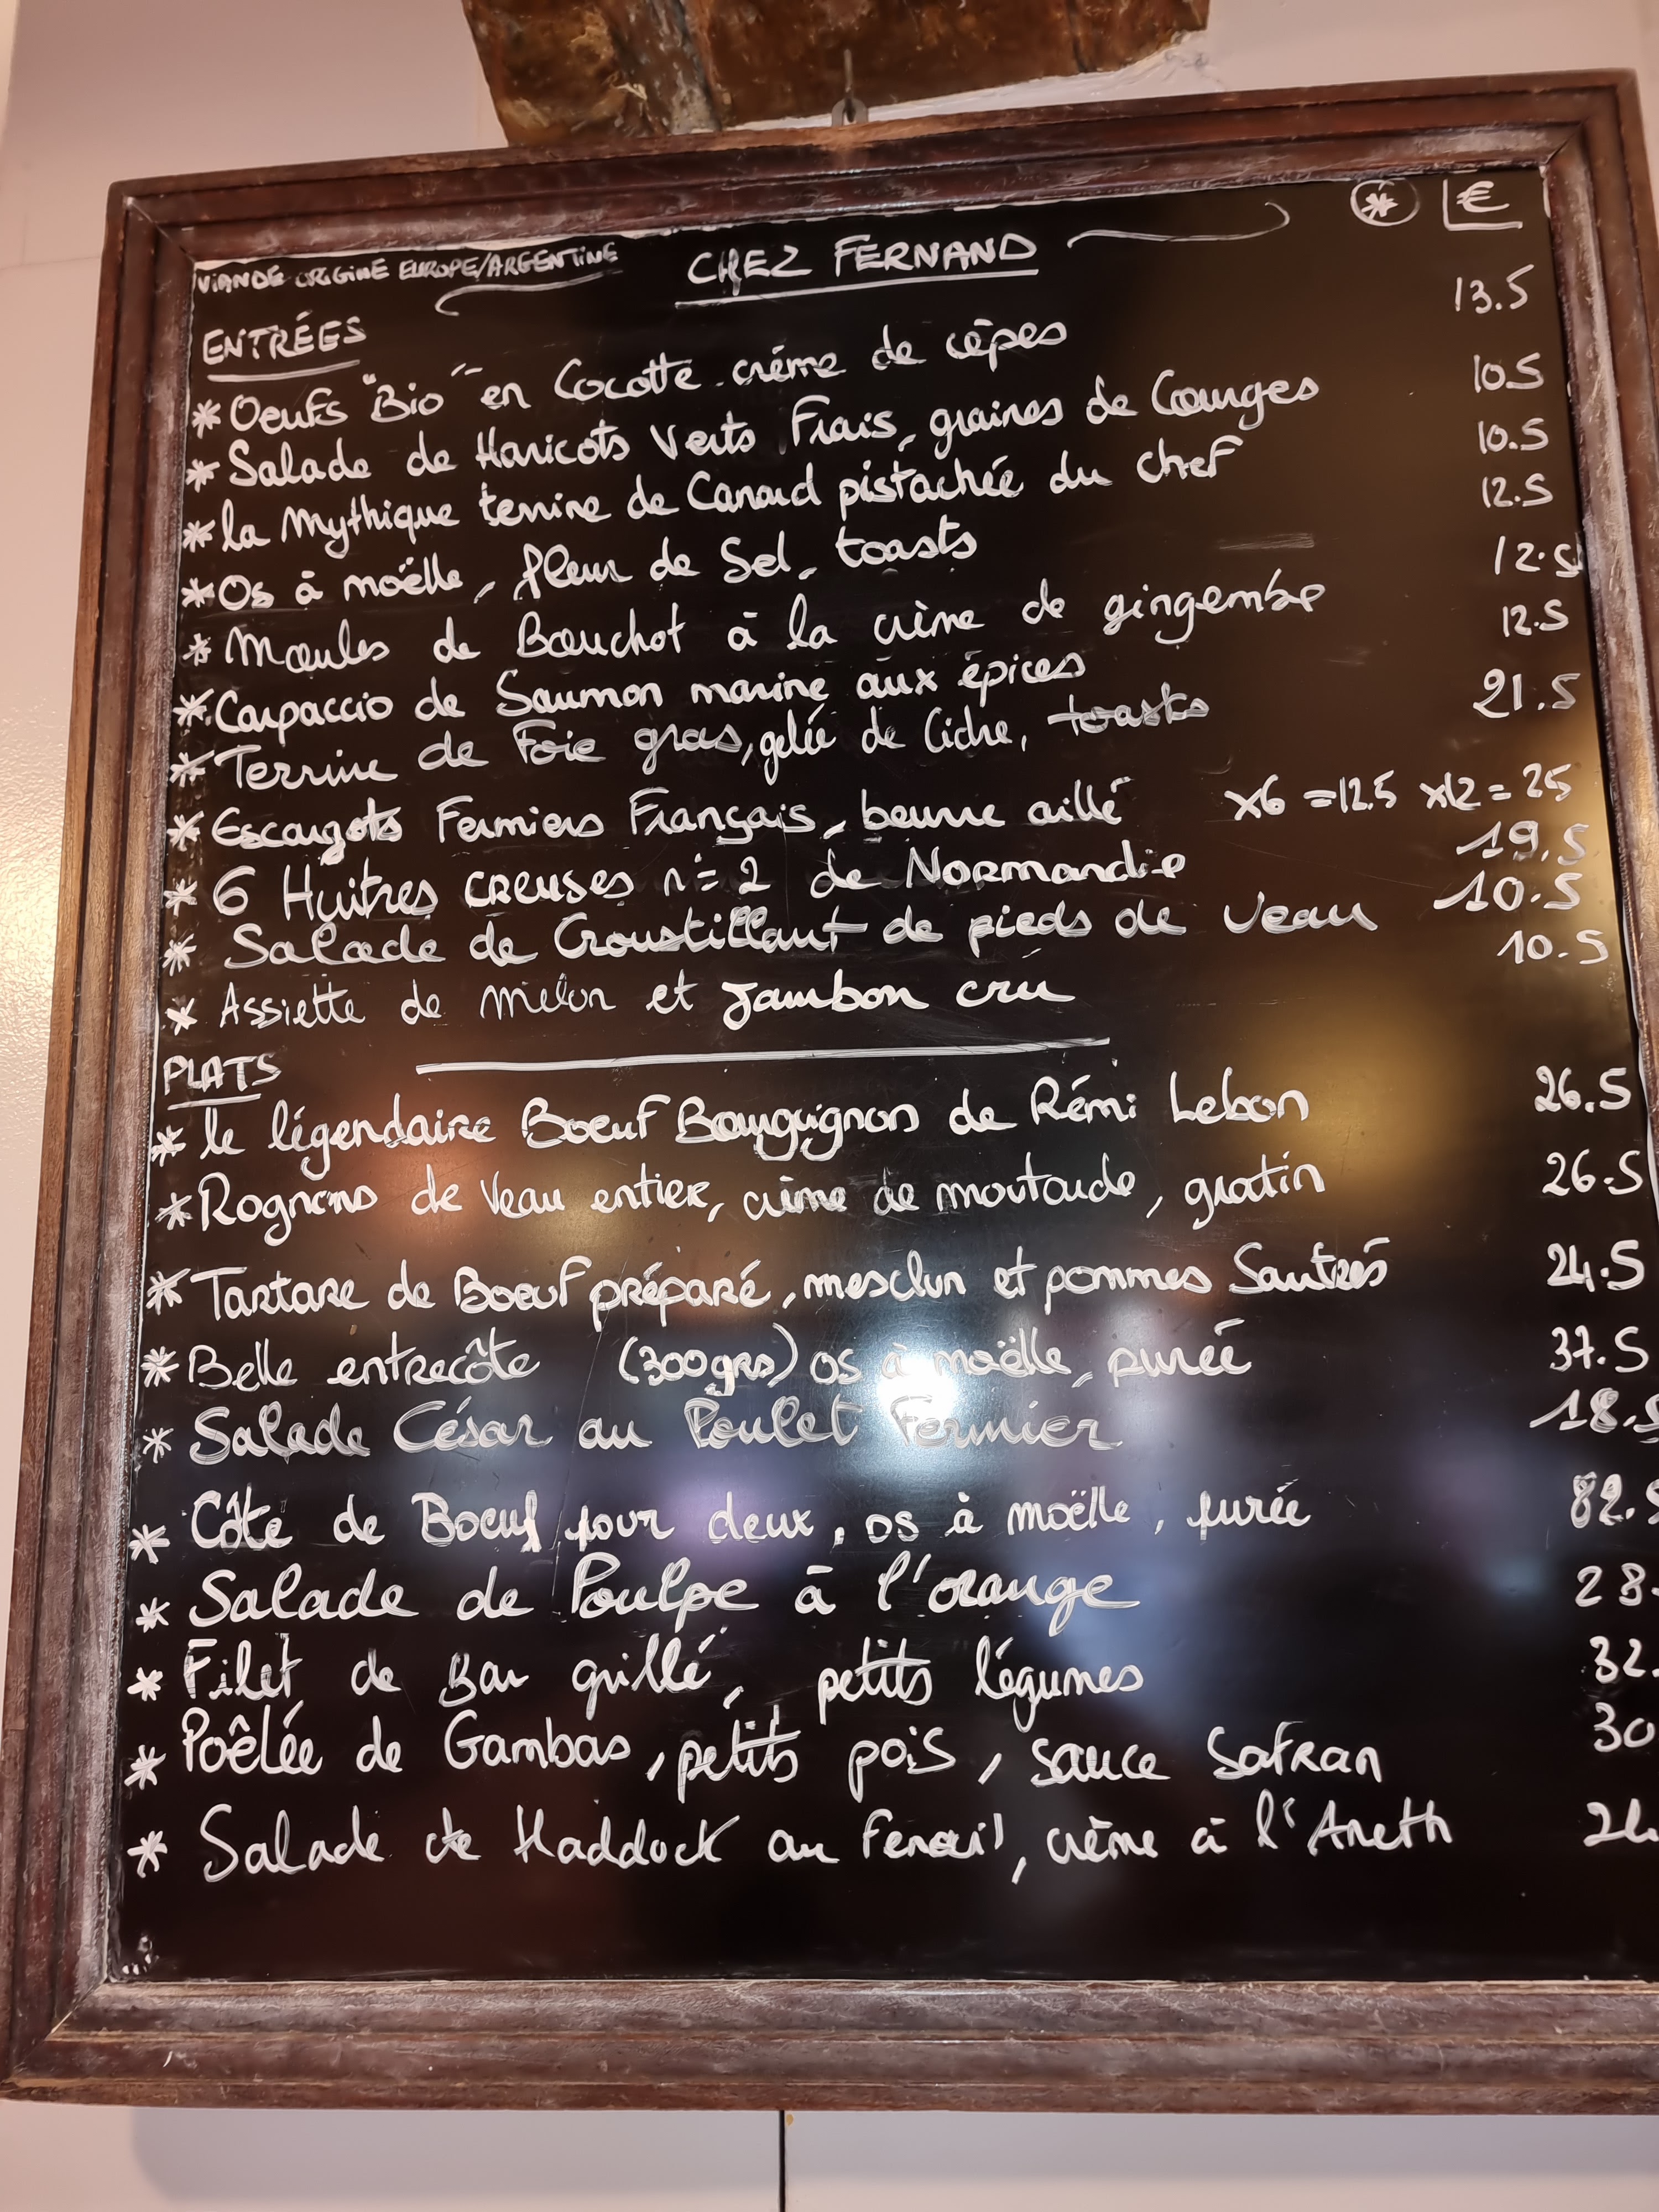 VIANDE ORIGINE EUROPE/ARGENTINE CHEZ FERNAND * €
ENTRÉES
* Oeufs "Bio" en Cocotte crème de cèpes 13.5
* Salade de Haricots Verts Frais, graines de Courges 10.5
* la Mythique terrine de Canard pistachée du chef 10.5
* Os à moëlle, fleur de Sel, toasts 12.5
* Moules de Bouchot à la crème de gingembre 12.5
* Carpaccio de Saumon marine aux épices 12.5
* Terrine de Foie gras, gelée de Cidre, toasts 21.5
* Escargots Fermiers Français, beurre aillé x6 = 12.5 x12 = 25
* 6 Huitres creuses n°= 2 de Normandie 19.5
* Salade de Croustillant de pieds de Veau 10.5
* Assiette de Melon et Jambon cru 10.5
PLATS
* le légendaire Boeuf Bourguignon de Rémi Lebon 26.5
* Rognons de Veau entier, crème de moutarde, gratin 26.5
* Tartare de Boeuf préparé, mesclun et pommes Sautées 24.5
* Belle entrecôte (300grs) os à moëlle, purée 37.5
* Salade César au Poulet Fermier 18.5
* Côte de Boeuf pour deux, os à moëlle, purée 82.5
* Salade de Poulpe à l'orange 28.
* Filet de Bar grillé, petits légumes 32.
* Poêlée de Gambas, petits pois, sauce Safran 30
* Salade de Haddock au Fenouil, crème à l'Aneth